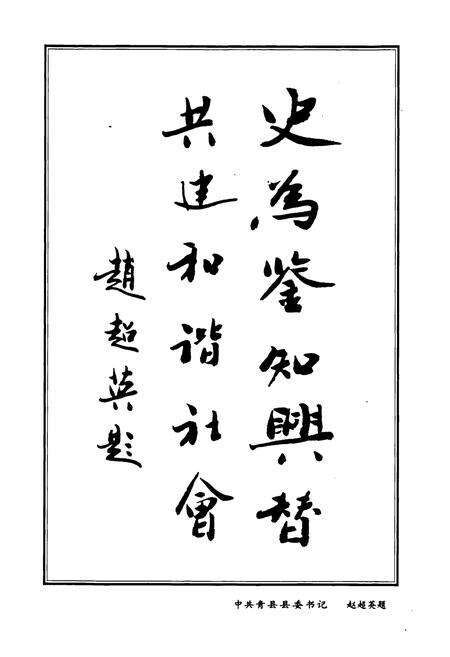 史為鉴知興替
共建和谐社會
趙超英題
中共青县县委书记 赵超英题